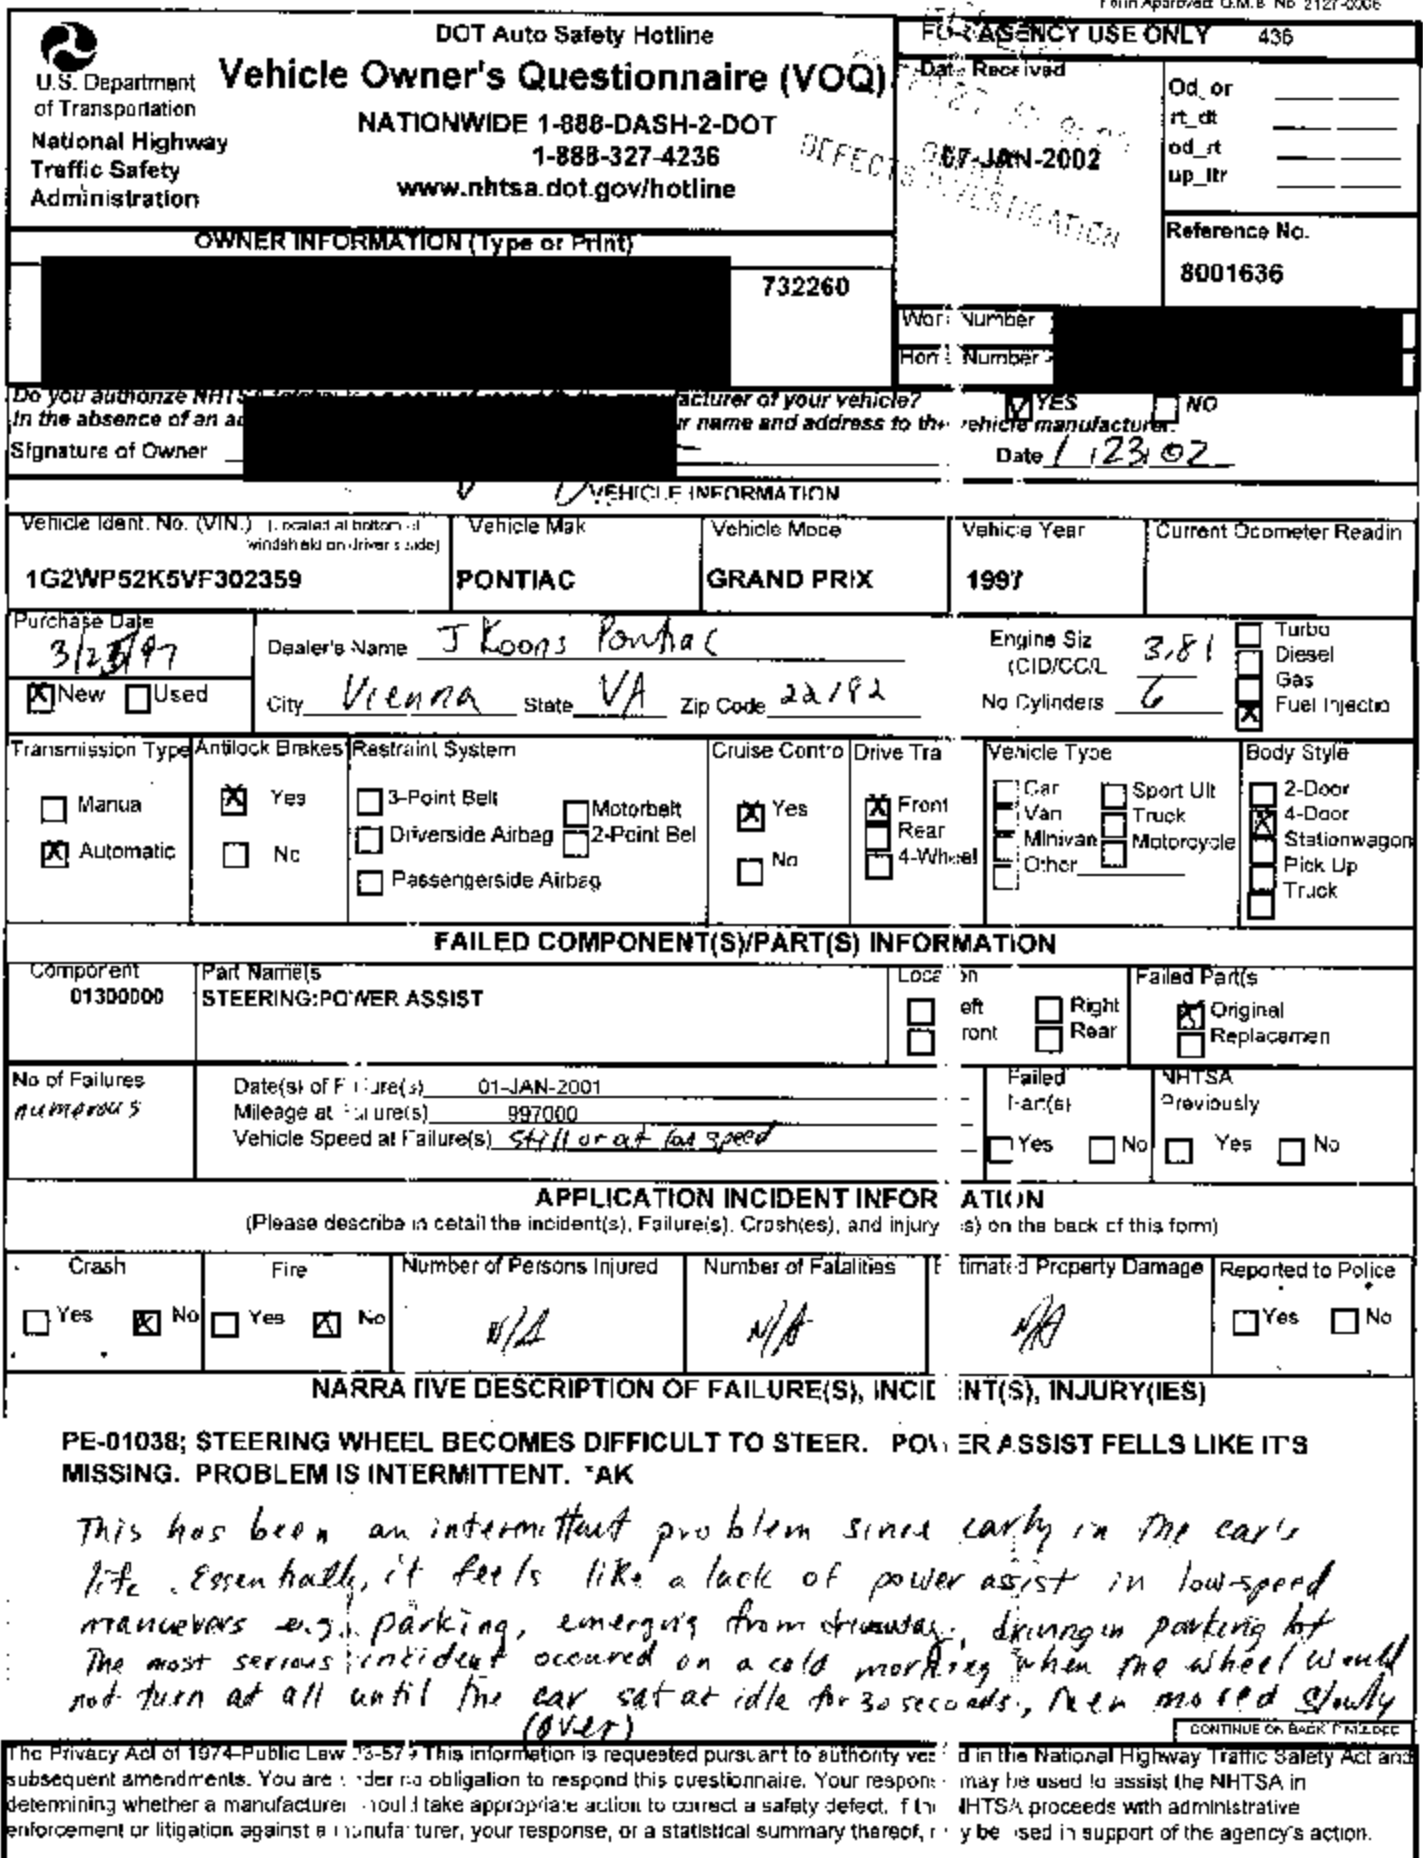 Form Approved: O.M.B. No. 2127-0008
DOT Auto Safety Hotline
Vehicle Owner's Questionnaire (VOQ)
NATIONWIDE 1-888-DASH-2-DOT
1-888-327-4236
www.nhtsa.dot.gov/hotline
U.S. Department
of Transportation
National Highway
Traffic Safety
Administration
FOR AGENCY USE ONLY 436
Date Received
07-JAN-2002
DEFECTS INVESTIGATION
Od_or
rt_dt
od_rt
up_ltr
Reference No.
8001636
OWNER INFORMATION (Type or Print)
732260
Work Number
Home Number
Do you authorize NHTSA manufacturer of your vehicle? YES NO
In the absence of an name and address to the vehicle manufacturer.
Signature of Owner Date 1/23/02
VEHICLE INFORMATION
Vehicle Ident. No. (VIN.) (Located at bottom of
windshield on driver's side)
1G2WP52K5VF302359
Vehicle Mak
PONTIAC
Vehicle Mode
GRAND PRIX
Vehicle Year
1997
Current Odometer Readin
Purchase Date
3/23/97
New Used
Dealer's Name J Koons Pontiac
City Vienna State VA Zip Code 22182
Engine Siz 3.8l
(CID/CC/L
No Cylinders 6
Turbo
Diesel
Gas
Fuel Injectio
Transmission Type
Manua
Automatic
Antilock Brakes
Yes
No
Restraint System
3-Point Belt
Driverside Airbag
Passengerside Airbag
Motorbelt
2-Point Bel
Cruise Contro
Yes
No
Drive Tra
Front
Rear
4-Wheel
Vehicle Type
Car
Van
Minivan
Other
Sport Ult
Truck
Motorcycle
Body Style
2-Door
4-Door
Stationwagon
Pick Up
Truck
FAILED COMPONENT(S)/PART(S) INFORMATION
Component
01300000
Part Name(s
STEERING:POWER ASSIST
Location
Left Right
Front Rear
Failed Part(s
Original
Replacemen
No of Failures
numerous
Date(s) of Failure(s) 01-JAN-2001
Mileage at Failure(s) 997000
Vehicle Speed at Failure(s) still or at low speed
Failed
Part(s)
Yes No
NHTSA
Previously
Yes No
APPLICATION INCIDENT INFORMATION
(Please describe in detail the incident(s), Failure(s), Crash(es), and injury(ies) on the back of this form)
Crash
Yes No
Fire
Yes No
Number of Persons Injured
N/A
Number of Fatalities
N/A
Estimated Property Damage
N/A
Reported to Police
Yes No
NARRATIVE DESCRIPTION OF FAILURE(S), INCIDENT(S), INJURY(IES)
PE-01038; STEERING WHEEL BECOMES DIFFICULT TO STEER. POWER ASSIST FELLS LIKE IT'S
MISSING. PROBLEM IS INTERMITTENT. *AK
This has been an intermittent problem since early in the car's
life. Essentially, it feels like a lack of power assist in low-speed
manuevers e.g. parking, emerging from driveway, driving in parking lot
The most serious incident occured on a cold morning when the wheel would
not turn at all until the car sat at idle for 30 seconds, then moved slowly
(over)
CONTINUE ON BACK IF NEEDED
The Privacy Act of 1974-Public Law 93-579 This information is requested pursuant to authority vested in the National Highway Traffic Safety Act and
subsequent amendments. You are under no obligation to respond this questionnaire. Your response may be used to assist the NHTSA in
determining whether a manufacturer should take appropriate action to correct a safety defect. If the NHTSA proceeds with administrative
enforcement or litigation against a manufacturer, your response, or a statistical summary thereof, may be used in support of the agency's action.